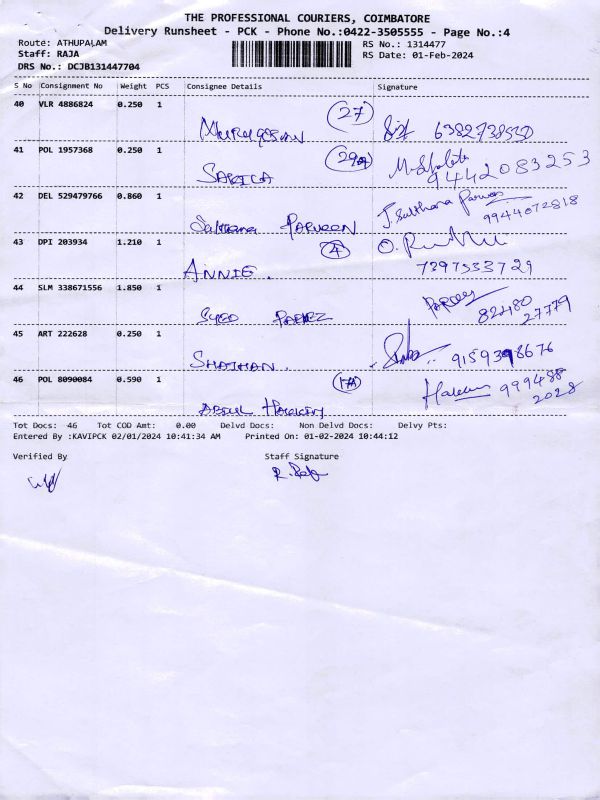 THE PROFESSIONAL COURIERS, COIMBATORE
Delivery Runsheet - PCK - Phone No.:0422-3505555 - Page No.:4
Route: ATHUPALAM RS No.: 1314477
Staff: RAJA RS Date: 01-Feb-2024
DRS No.: DCJB131447704
S No Consignment No Weight PCS Consignee Details Signature
40 VLR 4886824 0.250 1 27
MURUGESAN
41 POL 1957368 0.250 1
SABITA 9442083253
42 DEL 529479766 0.860 1
PARVEEN 9944072818
43 DPI 203934 1.210 1 4
ANNIE. 7397533729
44 SLM 338671556 1.850 1
SYED 82480
27779
45 ART 222628 0.250 1
9159398676
46 POL 8090084 0.590 1 17A
ABDUL 999488
2028
Tot Docs: 46 Tot COD Amt: 0.00 Delvd Docs: Non Delvd Docs: Delvy Pts:
Entered By :KAVIPCK 02/01/2024 10:41:34 AM Printed On: 01-02-2024 10:44:12
Verified By Staff Signature